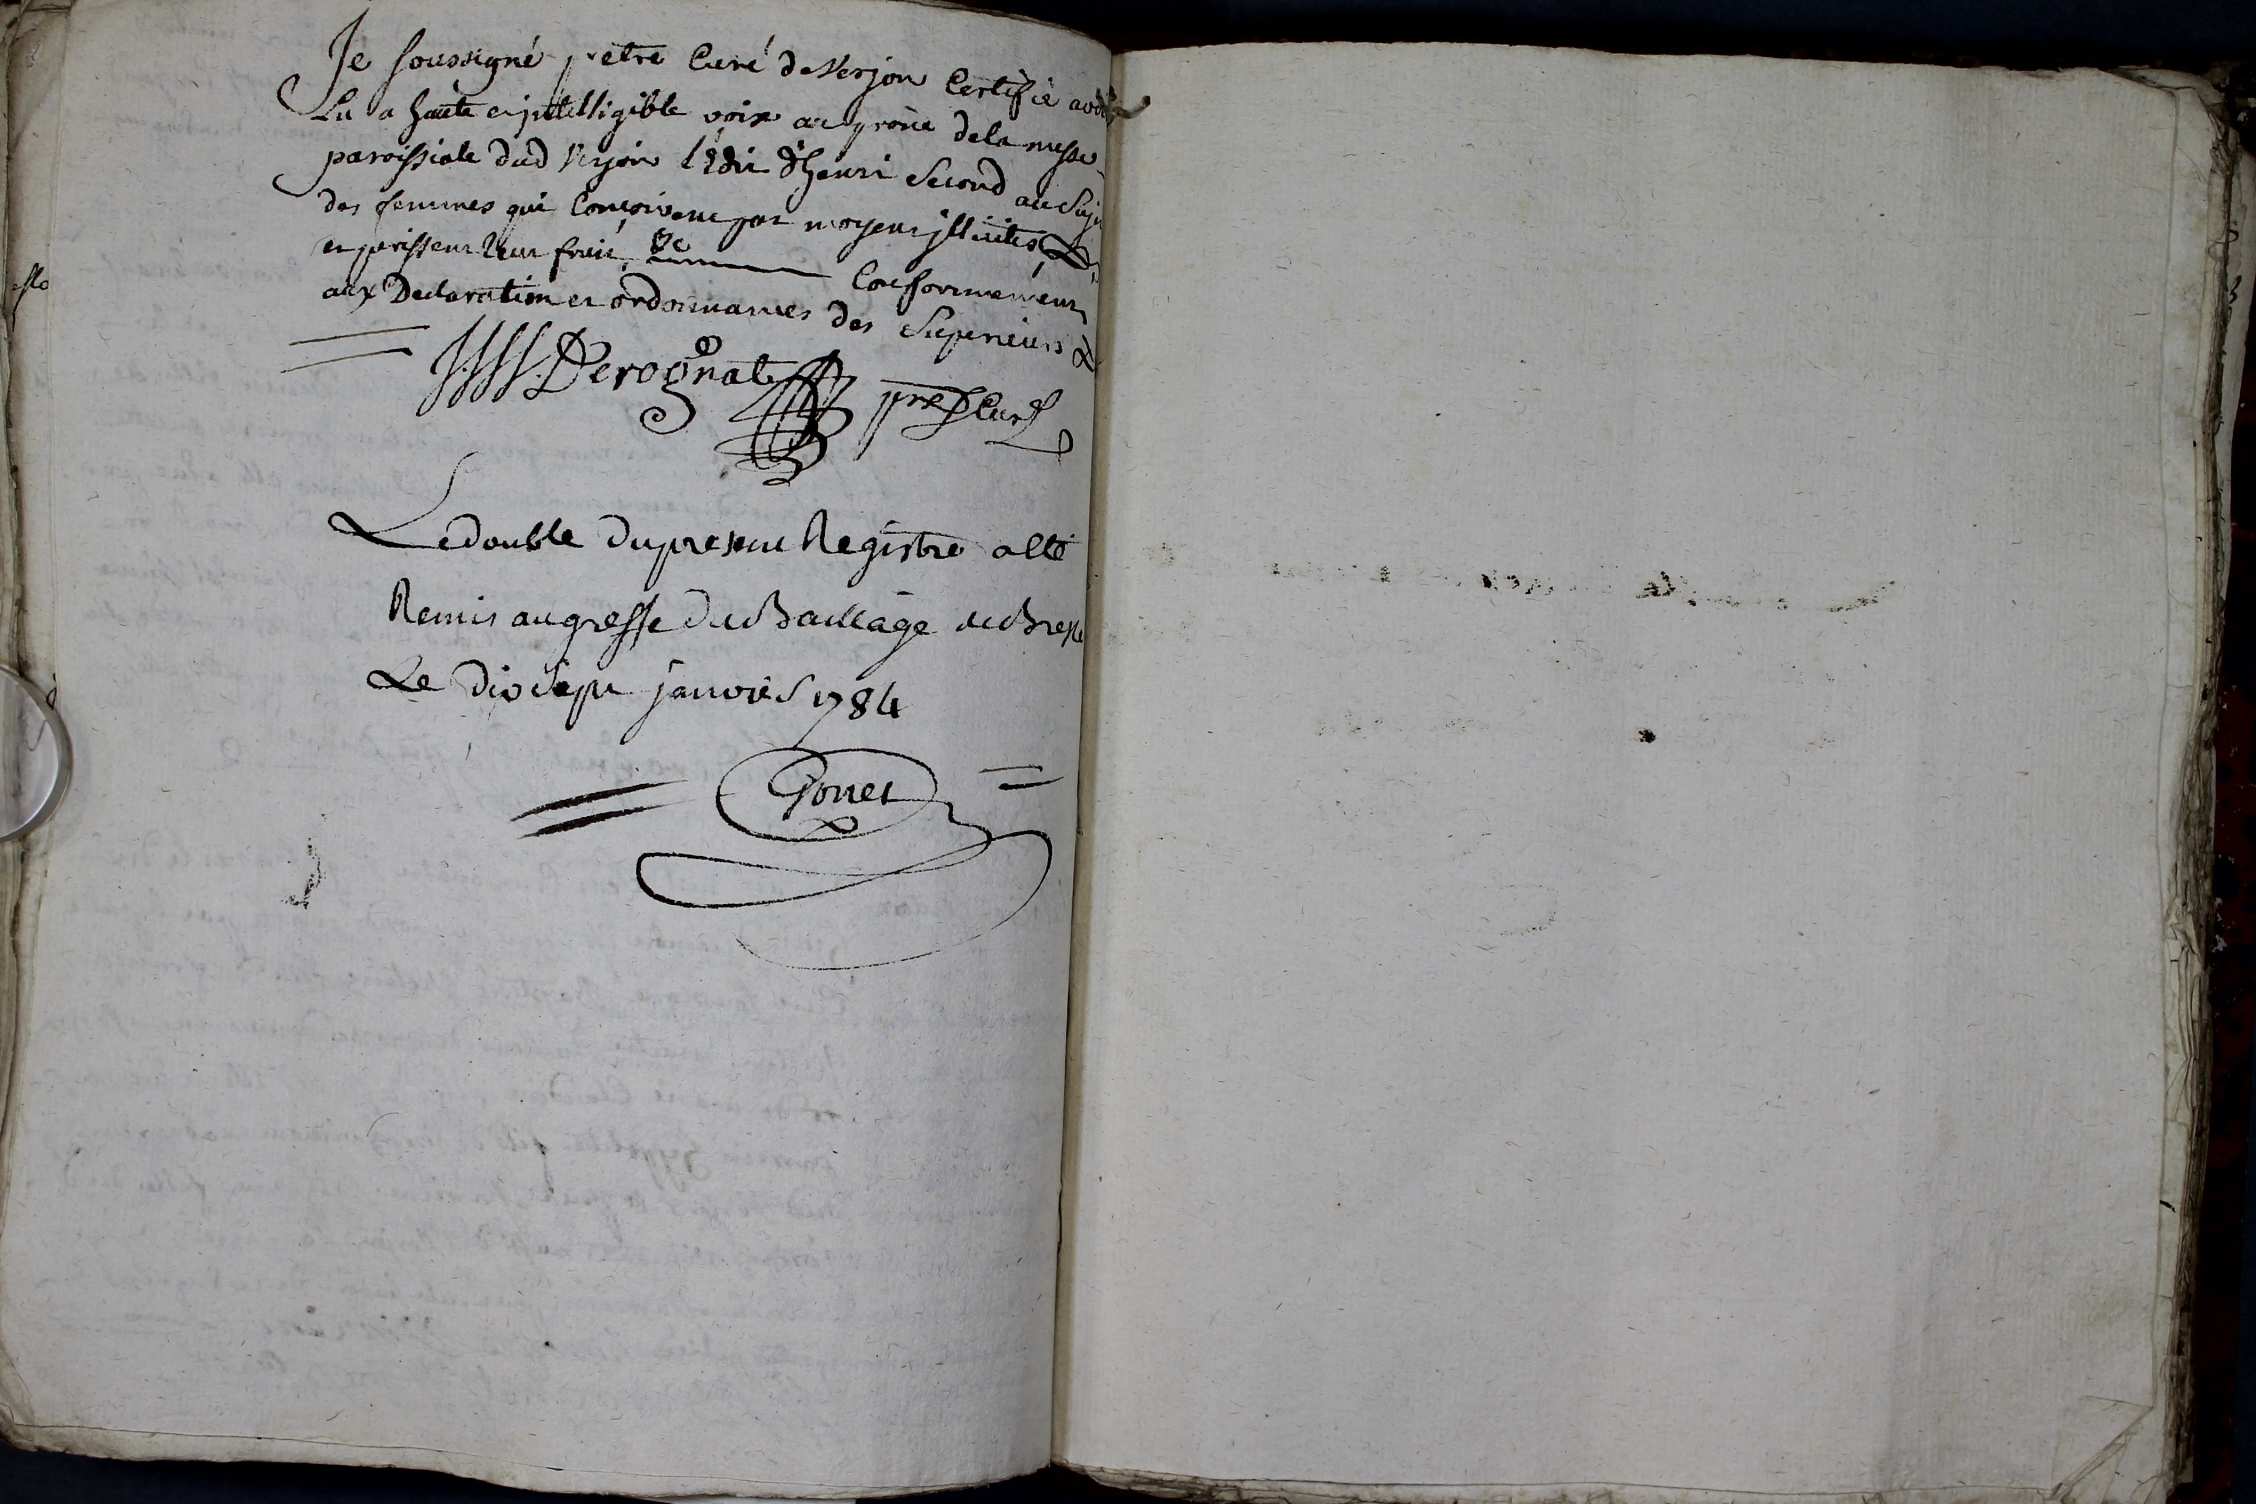 Je soussigné pretre Curé de Verjon Certifie avoir
Lu a haute et intelligible voix au prône de la messe
paroissiale dud Verjon l'Edit d'henri Second au Sujet
des femmes qui Conçoivent par moyens illicites &
et périssent leur fruit, &c Conformément
aux Declaration et ordonnances des Superieurs &
Derognat pre Curé
Le double du present Registre a été
Remis au greffe du Baillage de Bresse
Le dix sept janvier 1784